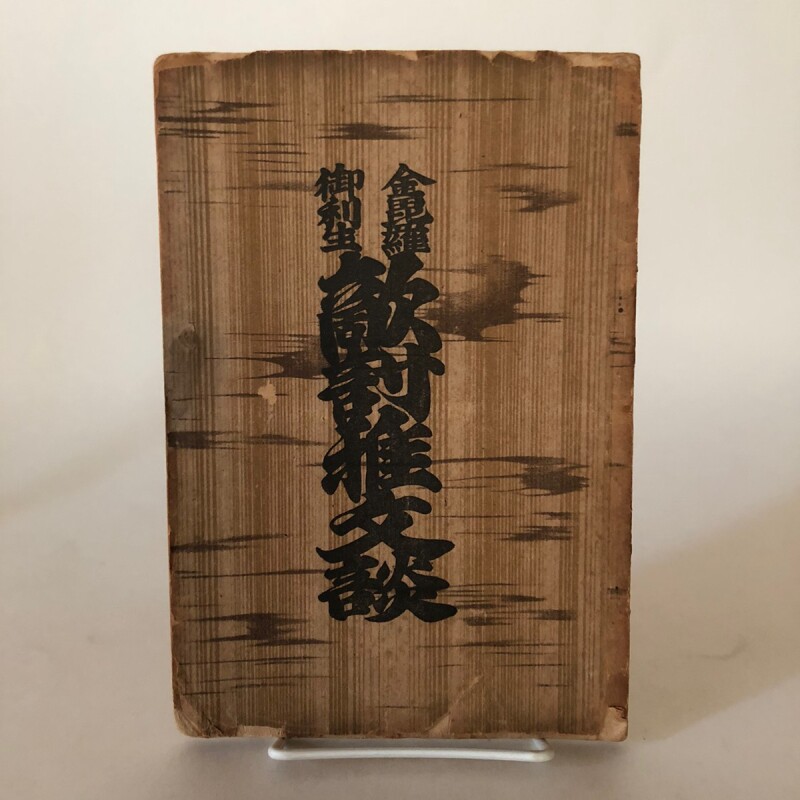 金毘羅
御利生
敵討稚文談